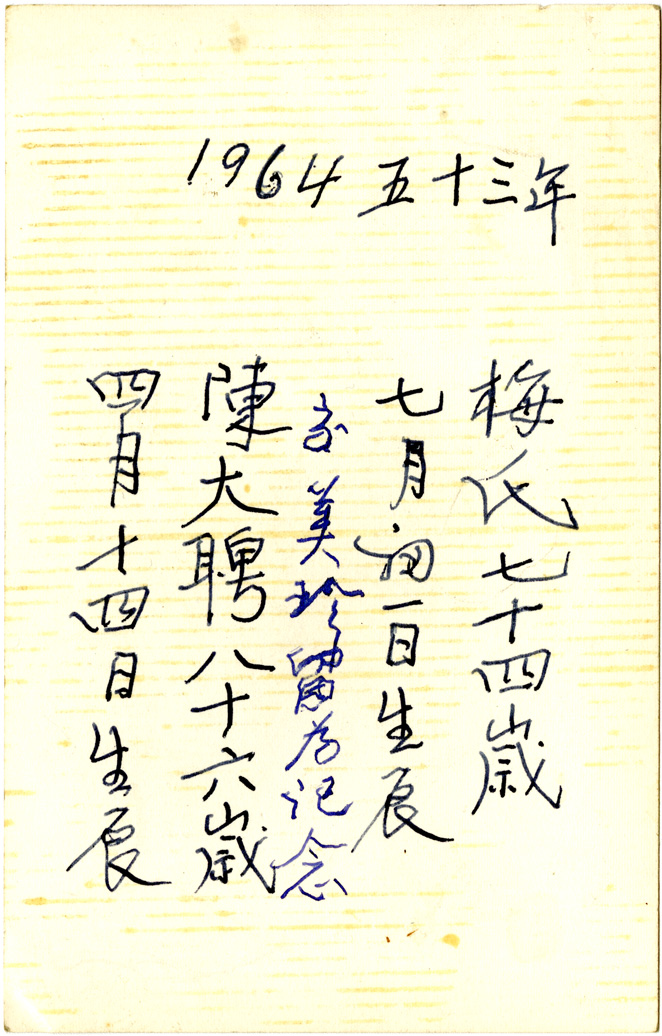 1964 五十三年
梅氏七十四歲
七月初一日生辰
交美玲留为记念
陳大聘八十六歲
四月十四日生辰